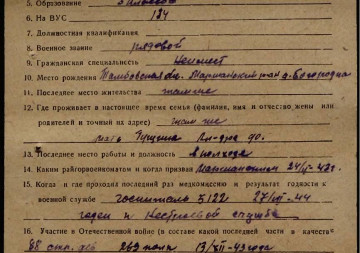 5. Образование
6. На ВУС 134
7. Должностная квалификация
8. Военное звание рядовой
9. Гражданская специальность
10. Место рождения Тамбовская обл. Моршанский р-он с.
11. Последнее место жительства там же
12. Где проживает в настоящее время семья (фамилия, имя и отчество жены или
родителей и точный их адрес) там же
мать
13. Последнее место работы и должность в колхозе
14. Каким райгорвоенкоматом и когда призван
15. Когда и где проходил последний раз медкомиссию и результат годности к
военной службе госпиталь 5122
годен к нестроевой службе
16. Участие в Отечественной войне (в составе какой последней части и в качестве
88 269 полк 13/XII-43 года